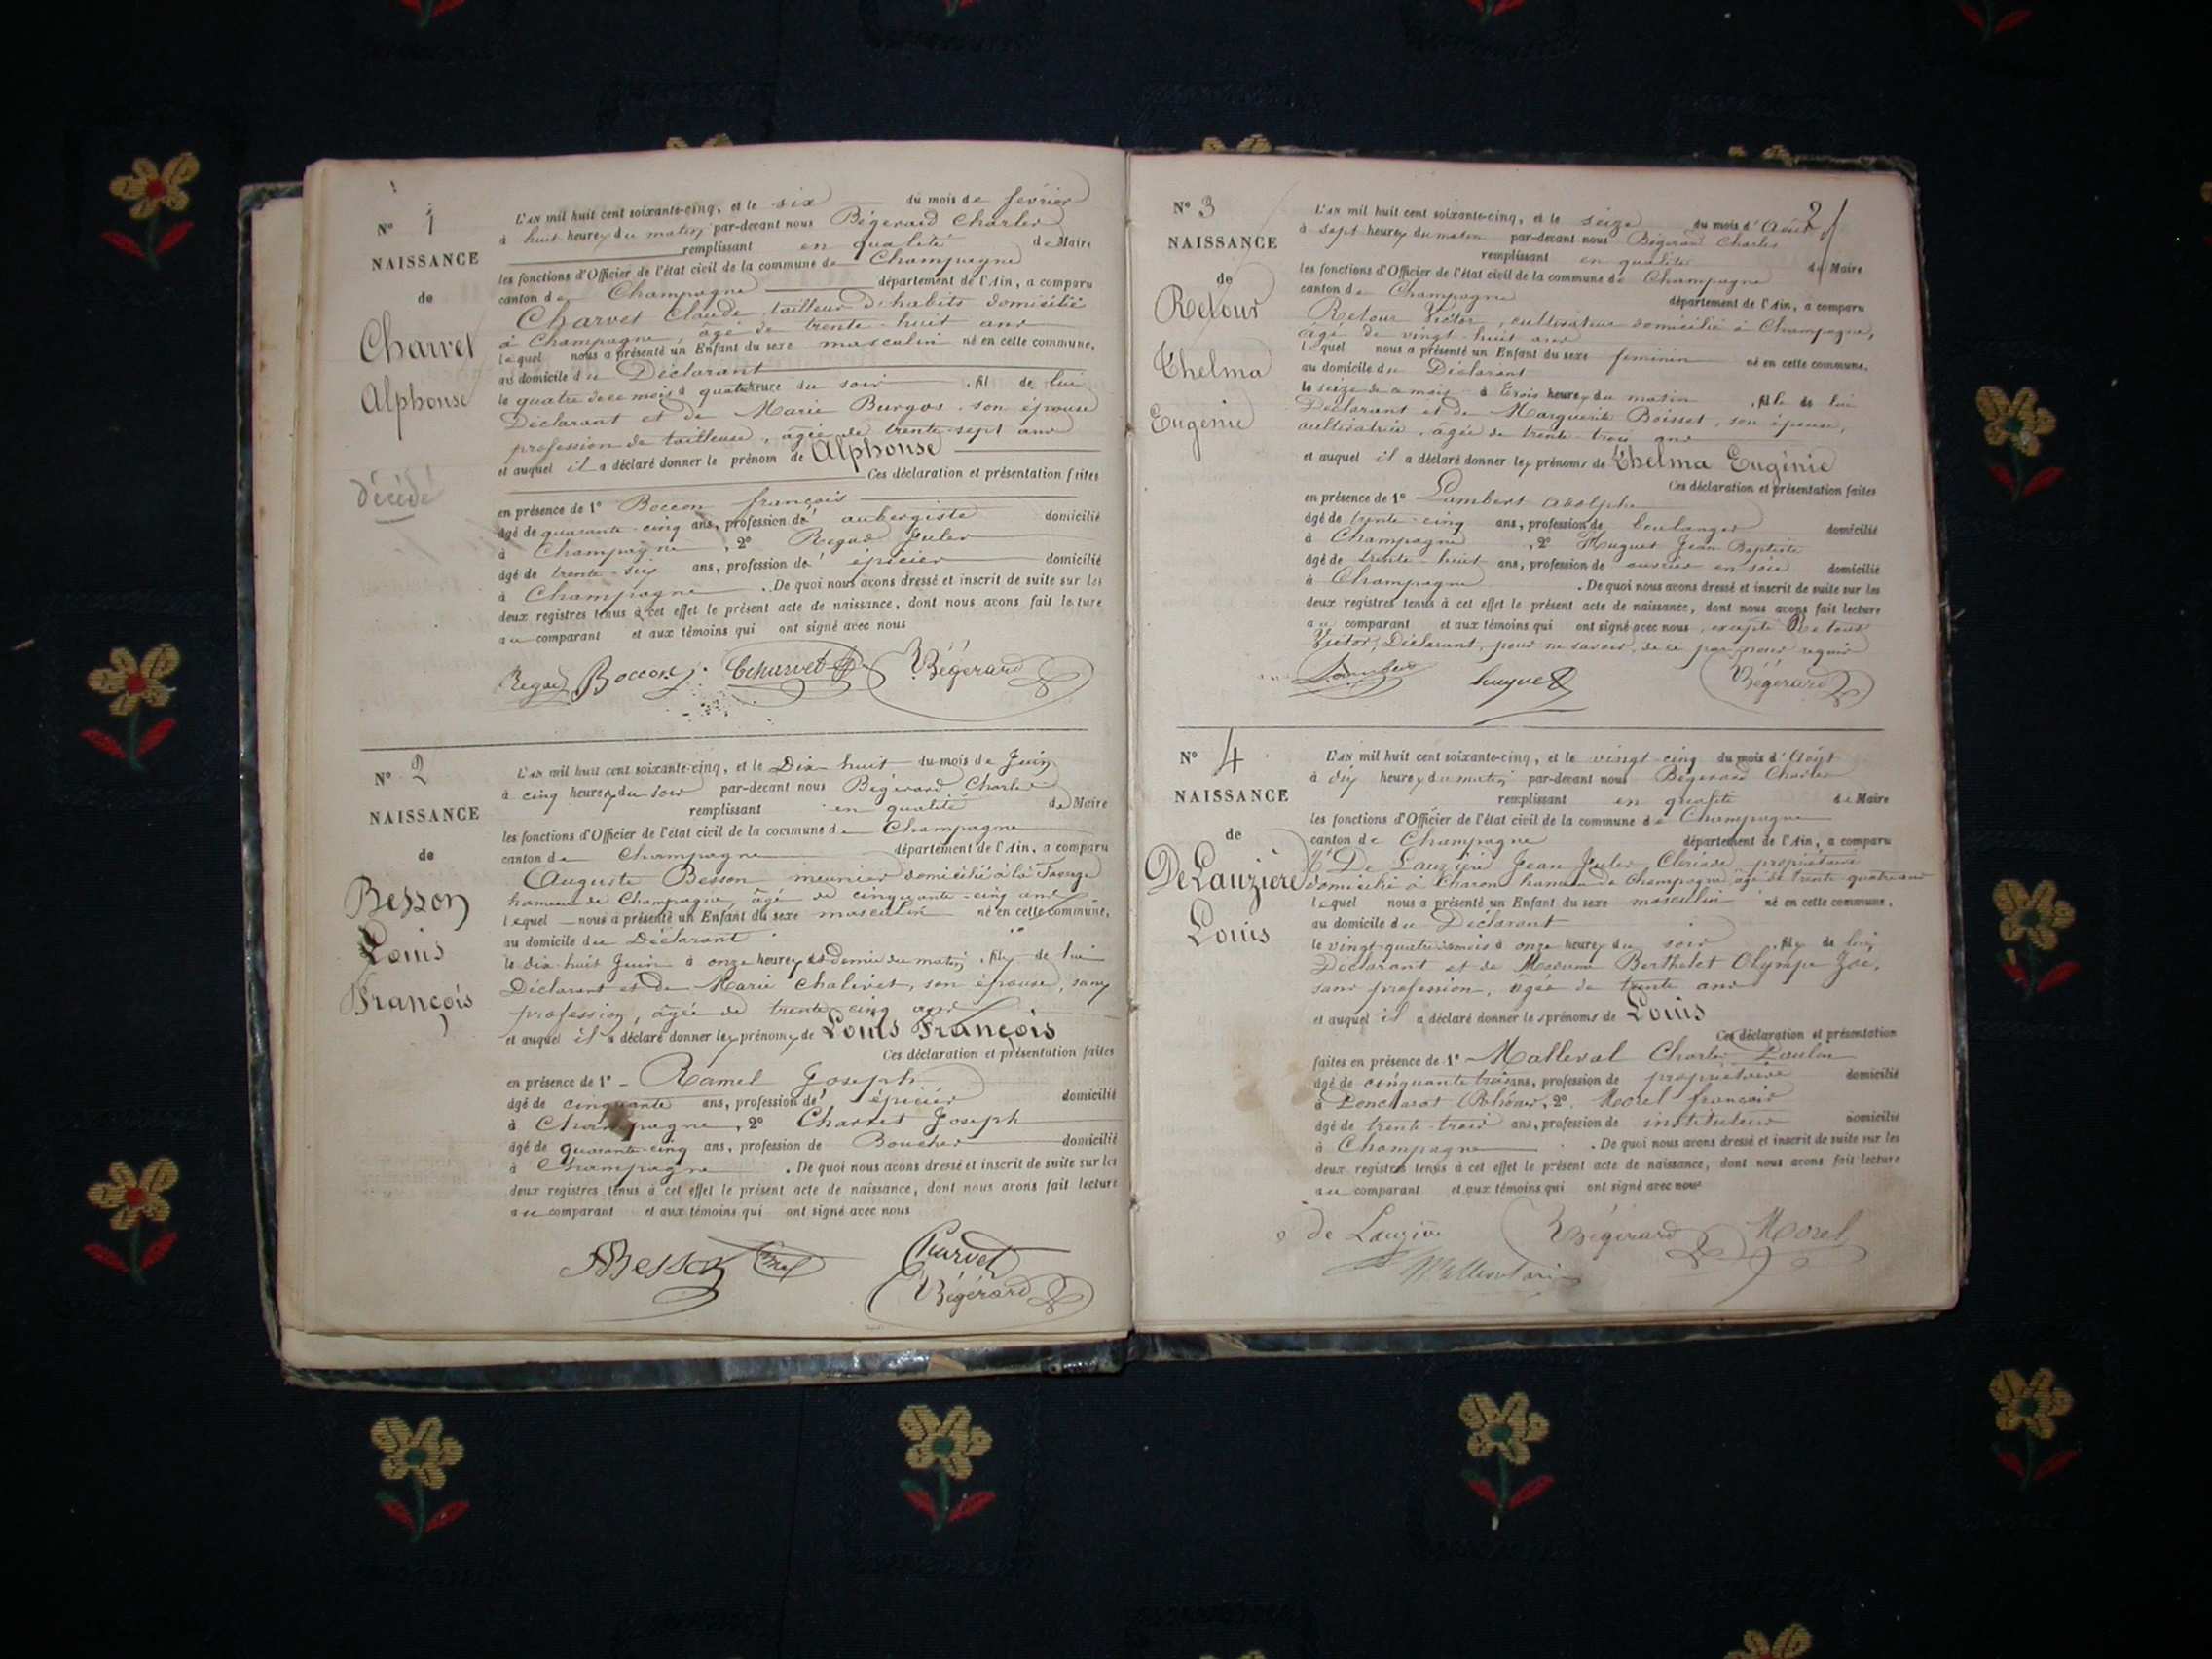 N° 1
NAISSANCE
de
Charvet
Alphonse
décédé
L'AN mil huit cent soixante-cinq, et le six du mois de février
à huit heures du matin par-devant nous Bégerard Charles
remplissant en qualité de Maire
les fonctions d'Officier de l'état civil de la commune de Champagne
canton de Champagne département de l'Ain, a comparu
Charvet Claude, tailleur d'habits domicilié
à Champagne, âgé de trente-huit ans
lequel nous a présenté un Enfant du sexe masculin né en cette commune,
au domicile du Déclarant
le quatre de ce mois à quatre heure du soir, fil de lui
Déclarant et de Marie Burgos, son épouse
profession de tailleuse, âgée de trente-sept ans
et auquel il a déclaré donner le prénom de Alphonse
Ces déclaration et présentation faites
en présence de 1° Boccon françois
âgé de quarante-cinq ans, profession de aubergiste domicilié
à Champagne, 2° Regad Jules
âgé de trente-six ans, profession de épicier domicilié
à Champagne. De quoi nous avons dressé et inscrit de suite sur les
deux registres tenus à cet effet le présent acte de naissance, dont nous avons fait lecture
au comparant et aux témoins qui ont signé avec nous
Regad Boccon f. Charvet Bégerard
N° 2
NAISSANCE
de
Besson
Louis
François
L'AN mil huit cent soixante-cinq, et le Dix-huit du mois de Juin
à cinq heures du soir par-devant nous Bégerard Charles
remplissant en qualité de Maire
les fonctions d'Officier de l'état civil de la commune de Champagne
canton de Champagne département de l'Ain, a comparu
Auguste Besson meunier domicilié à la
hameau de Champagne, âgé de cinquante-cinq ans
lequel nous a présenté un Enfant du sexe masculin né en cette commune,
au domicile du Déclarant
le dix-huit Juin à onze heures et demie du matin, fils de lui
Déclarant et de Marie Chalivet, son épouse, sans
profession, âgée de trente cinq ans
et auquel il a déclaré donner les prénoms de Louis François
Ces déclaration et présentation faites
en présence de 1° Ramel Joseph
âgé de cinquante ans, profession de épicier domicilié
à Champagne, 2° Charvet Joseph
âgé de quarante-cinq ans, profession de Boucher domicilié
à Champagne. De quoi nous avons dressé et inscrit de suite sur les
deux registres tenus à cet effet le présent acte de naissance, dont nous avons fait lecture
au comparant et aux témoins qui ont signé avec nous
ABesson Charvet
Bégerard
2
N° 3
NAISSANCE
de
Retour
Thelma
Eugénie
L'AN mil huit cent soixante-cinq, et le seize du mois d'Août
à sept heures du matin par-devant nous Bégerard Charles
remplissant en qualité de Maire
les fonctions d'Officier de l'état civil de la commune de Champagne
canton de Champagne département de l'Ain, a comparu
Retour Victor, cultivateur domicilié à Champagne,
âgé de vingt-huit ans
lequel nous a présenté un Enfant du sexe feminin né en cette commune,
au domicile du Déclarant
le seize de ce mois à trois heures du matin, fille de lui
Déclarant et de Marguerite Boisset, son épouse,
cultivatrice, âgée de trente-trois ans
et auquel il a déclaré donner les prénoms de Thelma Eugénie
Ces déclaration et présentation faites
en présence de 1° Lambert Adolphe
âgé de trente-cinq ans, profession de boulanger domicilié
à Champagne, 2° Huguet Jean Baptiste
âgé de trente-huit ans, profession de ouvrier en soie domicilié
à Champagne. De quoi nous avons dressé et inscrit de suite sur les
deux registres tenus à cet effet le présent acte de naissance, dont nous avons fait lecture
au comparant et aux témoins qui ont signé avec nous, excepté Retour
Victor, Déclarant, pour ne savoir, de ce par nous requis
huguet Bégerard
N° 4
NAISSANCE
de
DeLauzière
Louis
L'AN mil huit cent soixante-cinq, et le vingt cinq du mois d'Août
à dix heures du matin par-devant nous Bégerard Charles
remplissant en qualité de Maire
les fonctions d'Officier de l'état civil de la commune de Champagne
canton de Champagne département de l'Ain, a comparu
De Lauzière Jean Jules propriétaire
domicilié à Charon hameau de Champagne âgé de trente-quatre ans
lequel nous a présenté un Enfant du sexe masculin né en cette commune,
au domicile du Déclarant
le vingt-quatre à onze heures du soir, fils de lui
Déclarant et de Madame Berthelet Olympe Zoé,
sans profession, âgée de trente ans
et auquel il a déclaré donner les prénoms de Louis
Ces déclaration et présentation
faites en présence de 1° Malleval Charles
âgé de cinquante trois ans, profession de propriétaire domicilié
à (Rhône), 2° Morel françois
âgé de trente-trois ans, profession de instituteur domicilié
à Champagne. De quoi nous avons dressé et inscrit de suite sur les
deux registres tenus à cet effet le présent acte de naissance, dont nous avons fait lecture
au comparant et aux témoins qui ont signé avec nous
de Lauzière Bégerard Morel